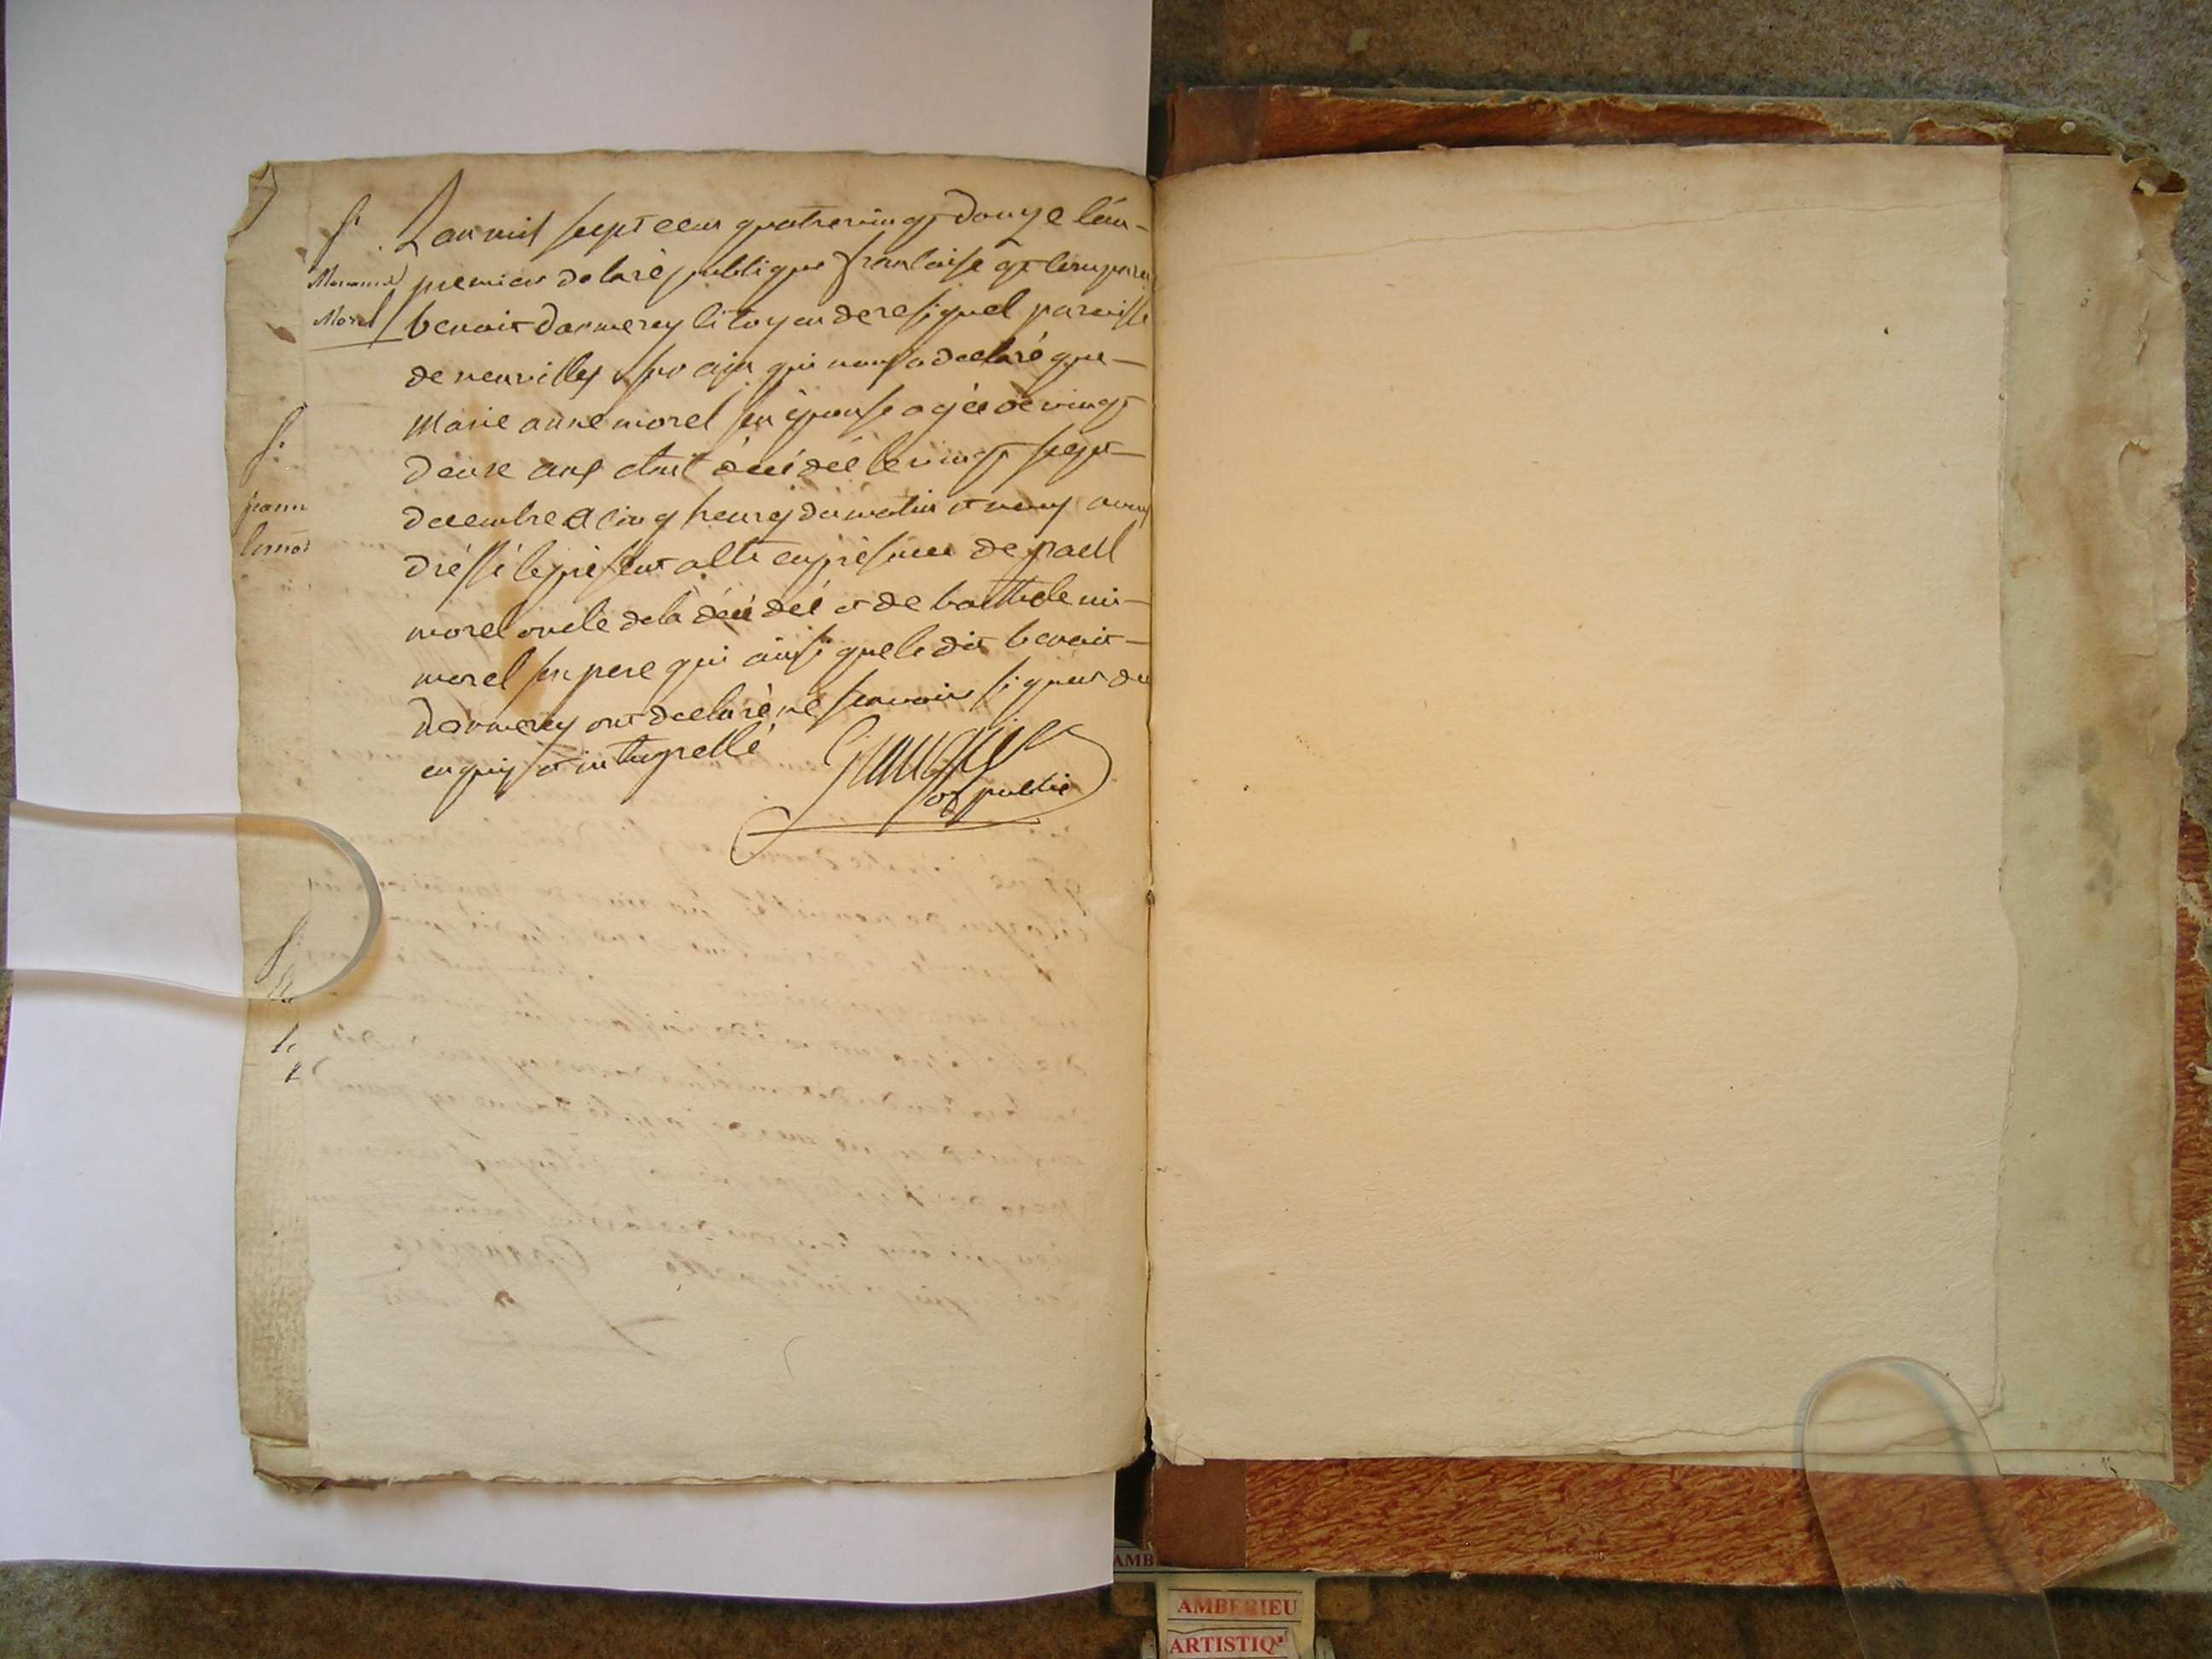 S.
Marianne
Morel
L'an mil sept cens quatrevingt douze l'an
premier de la république francaise est comparu
benoit dommerey citoyen de resignel paroisse
de neuvilles sur ain qui nous a declaré que
Marie anne morel son épouse agée de vingt
deux ans étoit décédée le vingt sept
decembre a cinq heures du matin et nous avons
dréssé le présent acte en présence de paul
morel oncle de la décédée et de barthelemi
morel son pere qui ainsi que le dit benoit
dommerey ont declaré ne scavoir signer de
enquis et interpellé
of public
S.
AMBERIEU
ARTISTIQ